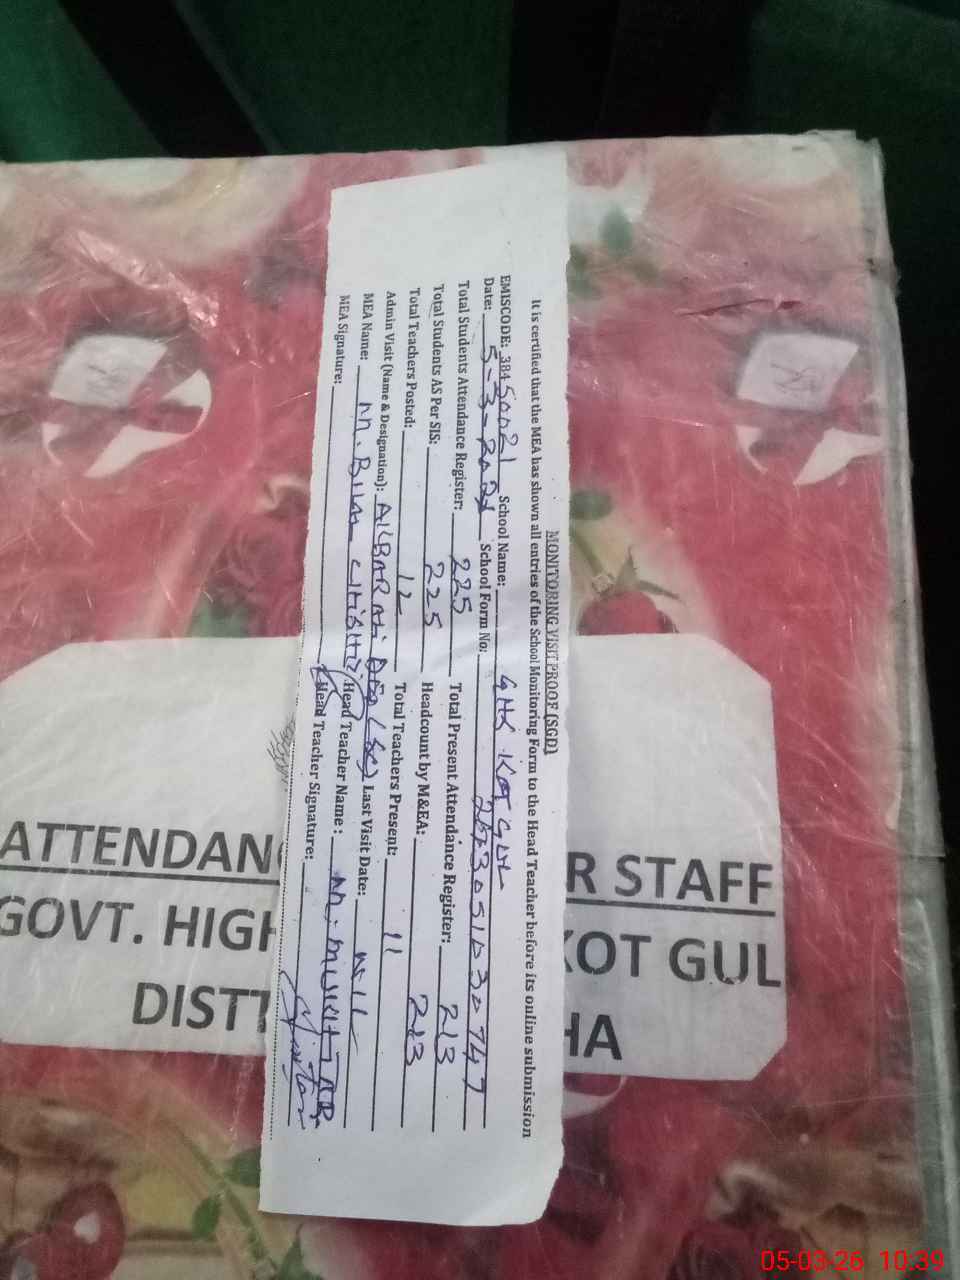 MONITORING VISIT PROOF (SGD)
It is certified that the MEA has shown all entries of the School Monitoring Form to the Head Teacher before its online submission
EMISCODE: 38450021 School Name: GHS KOT GUL
Date: 5-3-202 School Form No: 2673051030747
Total Students Attendance Register: 225 Total Present Attendance Register: 213
Total Students AS Per SIS: 225 Headcount by M&EA: 213
Total Teachers Posted: 12 Total Teachers Present: 11
Admin Visit (Name & Designation): AKBAR Ali Last Visit Date: NIL
MEA Name: M. Bilal Head Teacher Name: M. MUKHTAR
MEA Signature: Head Teacher Signature:
ATTENDAN R STAFF
GOVT. HIGH KOT GUL
DISTT HA
05-03-26 10:39